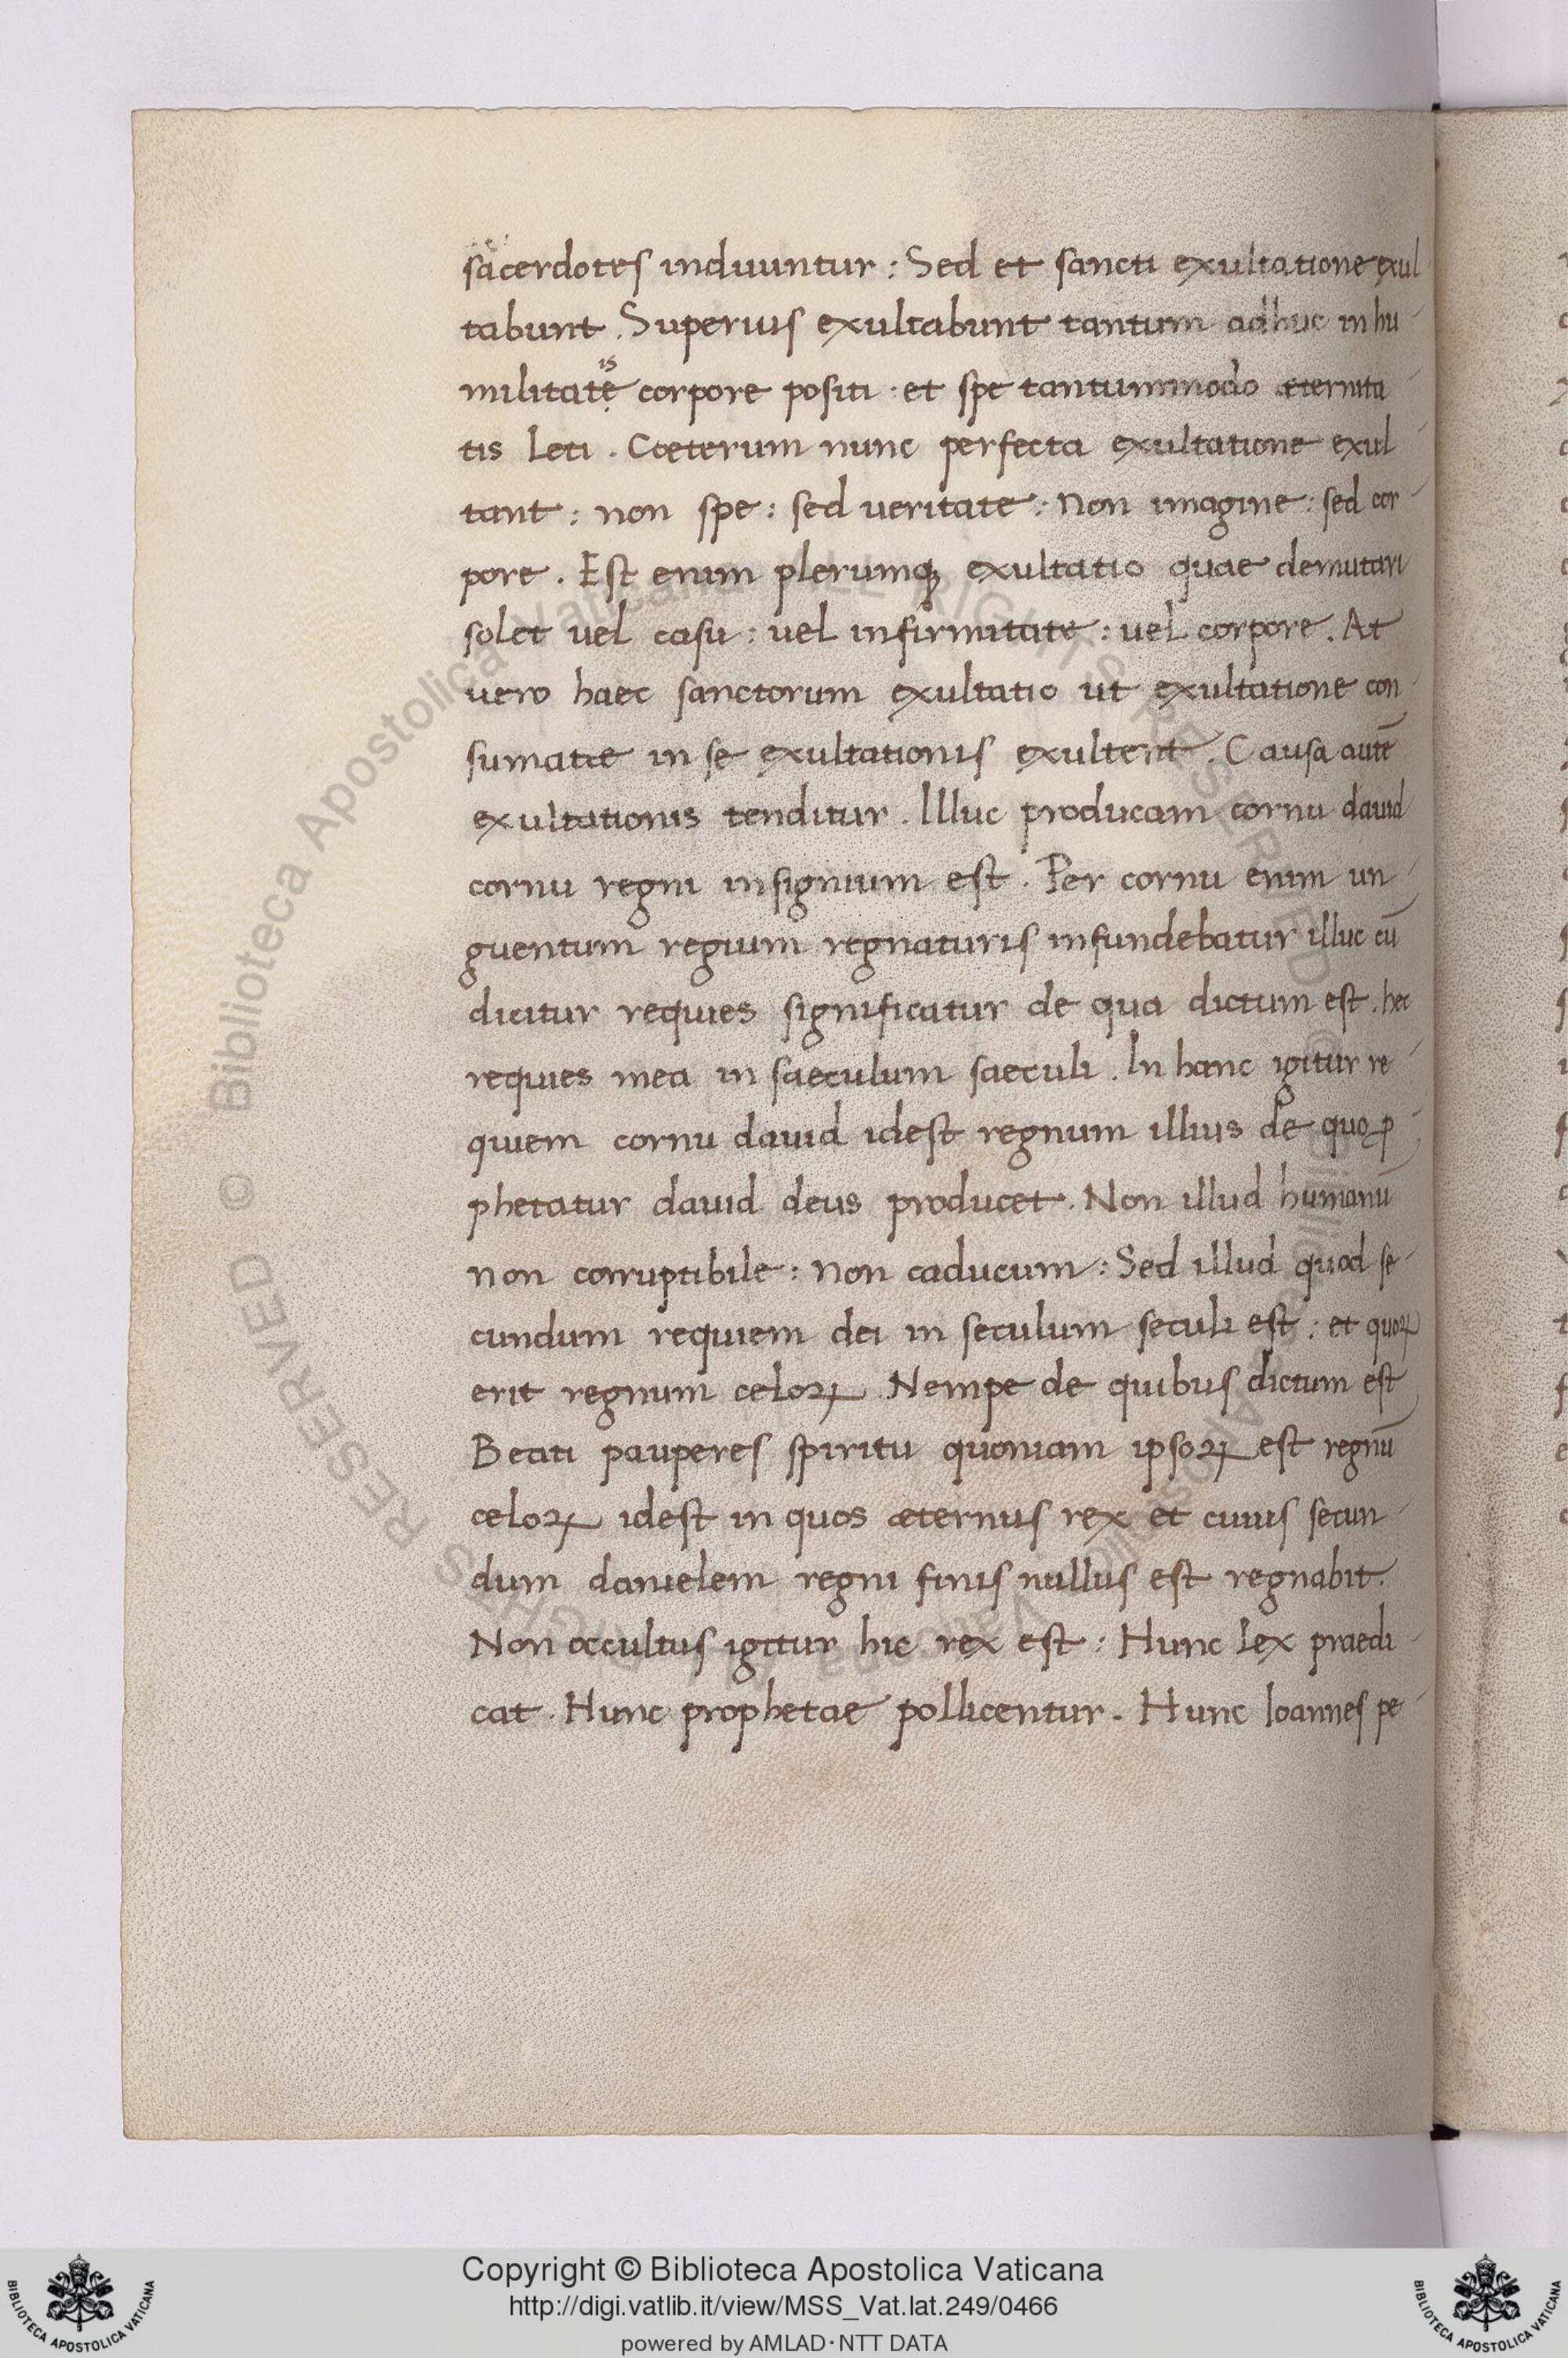 sacerdotes induuntur : Sed et sancti exultatione exul
tabunt . Superius exultabunt tantum adhuc in hu
is
militate corpore positi · et spe tantummodo æternita
tis leti . Cœterum nunc perfecta exultatione exul
tant : non spe : sed veritate : non imagine : sed cor
pore . Est enim plerumq; exultatio quae demutari
solet vel casu : vel infirmitate : vel corpore . At
vero haec sanctorum exultatio ut exultatione con
sumatæ in se exultationis exultent . Causa autē
exultationis tenditur . Illuc producam cornu dauid
cornu regni insignium est . Per cornu enim un
guentum regium regnaturis infundebatur illuc cū
dicitur requies significatur de qua dictum est . hec
requies mea in saeculum saeculi . In hanc igitur re
quiem cornu dauid idest regnum illius de quo ꝓ
phetatur dauid deus producet . Non illud humanū
non corruptibile : non caducum : Sed illud quod se
cundum requiem dei in seculum seculi est : et quoꝝ
erit regnum celoꝝ Nempe de quibus dictum est
Beati pauperes spiritu quoniam ipsoꝝ est regnū
celoꝝ idest in quos æternus rex et cuius secun
dum danielem regni finis nullus est regnabit .
Non occultus igitur hic rex est : Hunc lex praedi
cat . Hunc prophetae pollicentur . Hunc Ioannes pe
Biblioteca Apostolica Vaticana ALL RIGHTS RESERVED ©
Copyright © Biblioteca Apostolica Vaticana
http://digi.vatlib.it/view/MSS_Vat.lat.249/0466
powered by AMLAD·NTT DATA
BIBLIOTECA APOSTOLICA VATICANA
BIBLIOTECA APOSTOLICA VATICANA